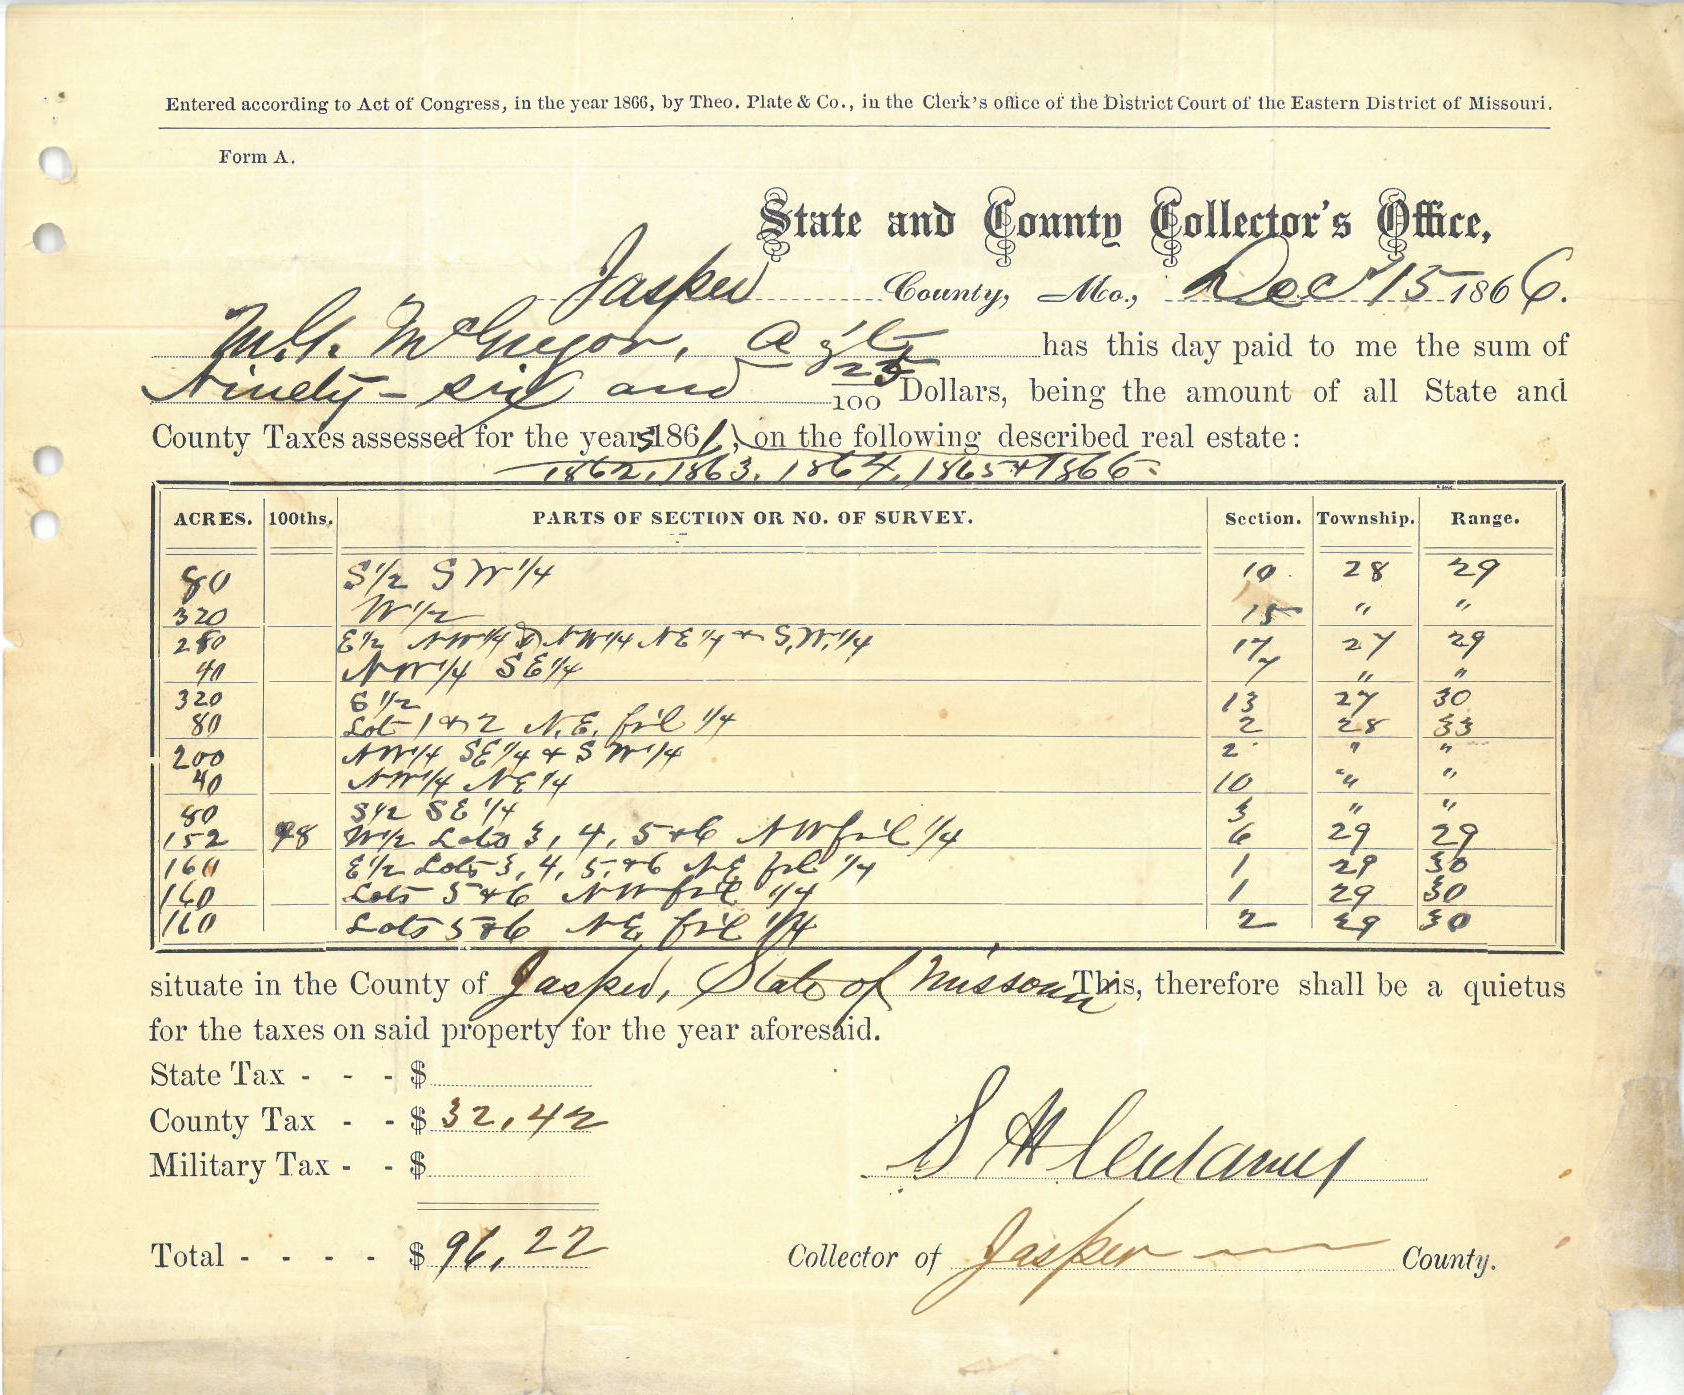 Entered according to Act of Congress, in the year 1866, by Theo. Plate & Co., in the Clerk's office of the District Court of the Eastern District of Missouri.
Form A.
State and County Collector's Office,
Jasper County, Mo., Dec 15 1866.
McGregor, has this day paid to me the sum of
Ninety-six and /100 Dollars, being the amount of all State and
County Taxes assessed for the years 1861, on the following described real estate:
1862, 1863, 1864, 1865 & 1866.
ACRES. 100ths. PARTS OF SECTION OR NO. OF SURVEY. Section. Township. Range.
80 S 1/2 S W 1/4 10 28 29
320 W 1/2 15 " "
280 E 1/2 NW 1/4 & NW 1/4 NE 1/4 & S.W. 1/4 17 27 29
40 NW 1/4 SE 1/4 7 " "
320 1/2 13 27 30
80 Lot 1 & 2 N.E. fr'l 1/4 2 28 33
200 NW 1/4 SE 1/4 & S W 1/4 2 " "
40 NW 1/4 NE 1/4 10 " "
80 S 1/2 SE 1/4 3 " "
152 98 W 1/2 Lots 3, 4, 5 & 6 NW fr'l 1/4 6 29 29
160 E 1/2 Lots 3, 4, 5, & 6 NE frl 1/4 1 29 30
160 Lots 5 & 6 NW fr'l 1/4 1 29 30
160 Lots 5 & 6 NE fr'l 1/4 2 29 30
situate in the County of Jasper, State of Missouri This, therefore shall be a quietus
for the taxes on said property for the year aforesaid.
State Tax - - - $
County Tax - - $ 32,42
Military Tax - - $
Total - - - - $ 96,22
S H
Collector of Jasper County.